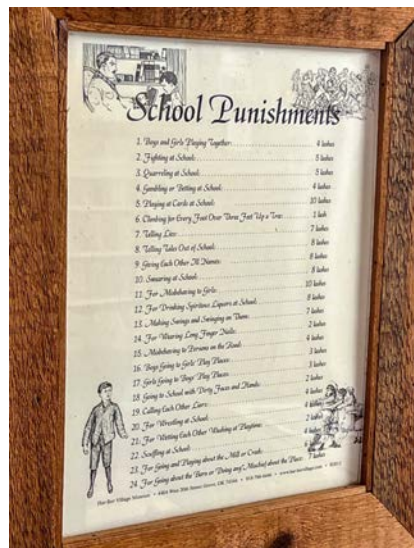 School Punishments
1. Boys and Girls Playing Together 4 lashes
2. Fighting at School 5 lashes
3. Quarreling at School 5 lashes
4. Gambling or Betting at School 4 lashes
5. Playing at Cards at School 10 lashes
6. Climbing for Every Foot Over Three Feet Up a Tree 1 lash
7. Telling Lies 7 lashes
8. Telling Tales Out of School 8 lashes
9. Giving Each Other Ill Names 8 lashes
10. Swearing at School 8 lashes
11. For Misbehaving to Girls 10 lashes
12. For Drinking Spiritous Liquors at School 8 lashes
13. Making Swings and Swinging on Them 7 lashes
14. For Wearing Long Finger Nails 2 lashes
15. Misbehaving to Persons on the Road 4 lashes
16. Boys Going to Girls' Play Places 3 lashes
17. Girls Going to Boys' Play Places 3 lashes
18. Going to School with Dirty Faces and Hands 2 lashes
19. Calling Each Other Liars 4 lashes
20. For Wrestling at School 4 lashes
21. For Wetting Each Other Washing at Playtime 2 lashes
22. Scuffling at School 4 lashes
23. For Going and Playing about the Mill or Creek 6
24. For Going about the Barn or Doing any Mischief about the Place 7 lashes
Har-Ber Village Museum • 4404 West 20th Street, Grove, OK 74344 • 918-786-6446 • www.har-bervillage.com